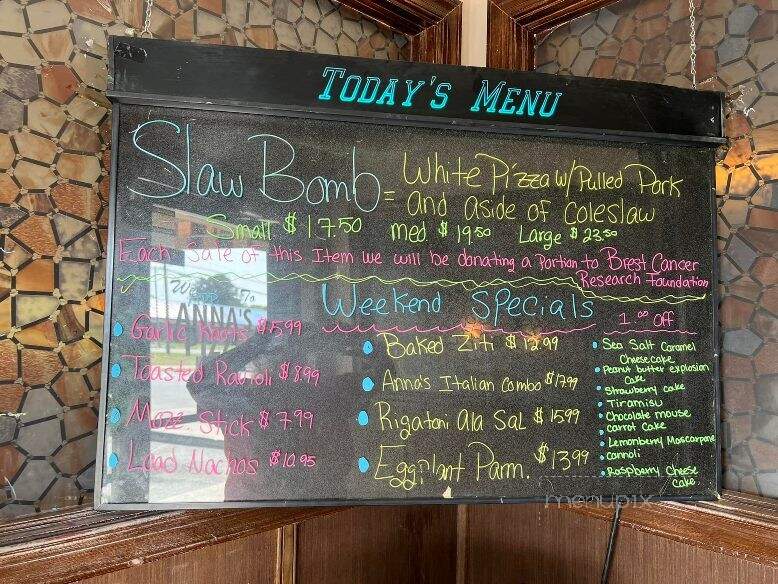 TODAY'S MENU
Slaw Bomb = White Pizza w/Pulled Pork
and aside of Coleslaw
Small $17.50 med $19.50 Large $23.50
Each Sale of this Item we will be donating a Portion to Brest Cancer
Research Foundation
Weekend Specials
ANNA'S
Garlic Knots $5.99
Toasted Ravioli $8.99
Mozz. Stick $7.99
Load Nachos $10.95
Baked Ziti $12.99
Anna's Italian Combo $17.99
Rigatoni Ala Sal $15.99
Eggplant Parm. $13.99
1.00 Off
Sea Salt Caramel
Cheesecake
Peanut butter explosion
Cake
Strawberry cake
Tiramisu
Chocolate mouse
Carrot Cake
Lemonberry Mascarpone
Cannoli
Raspberry Cheese
cake
menupix